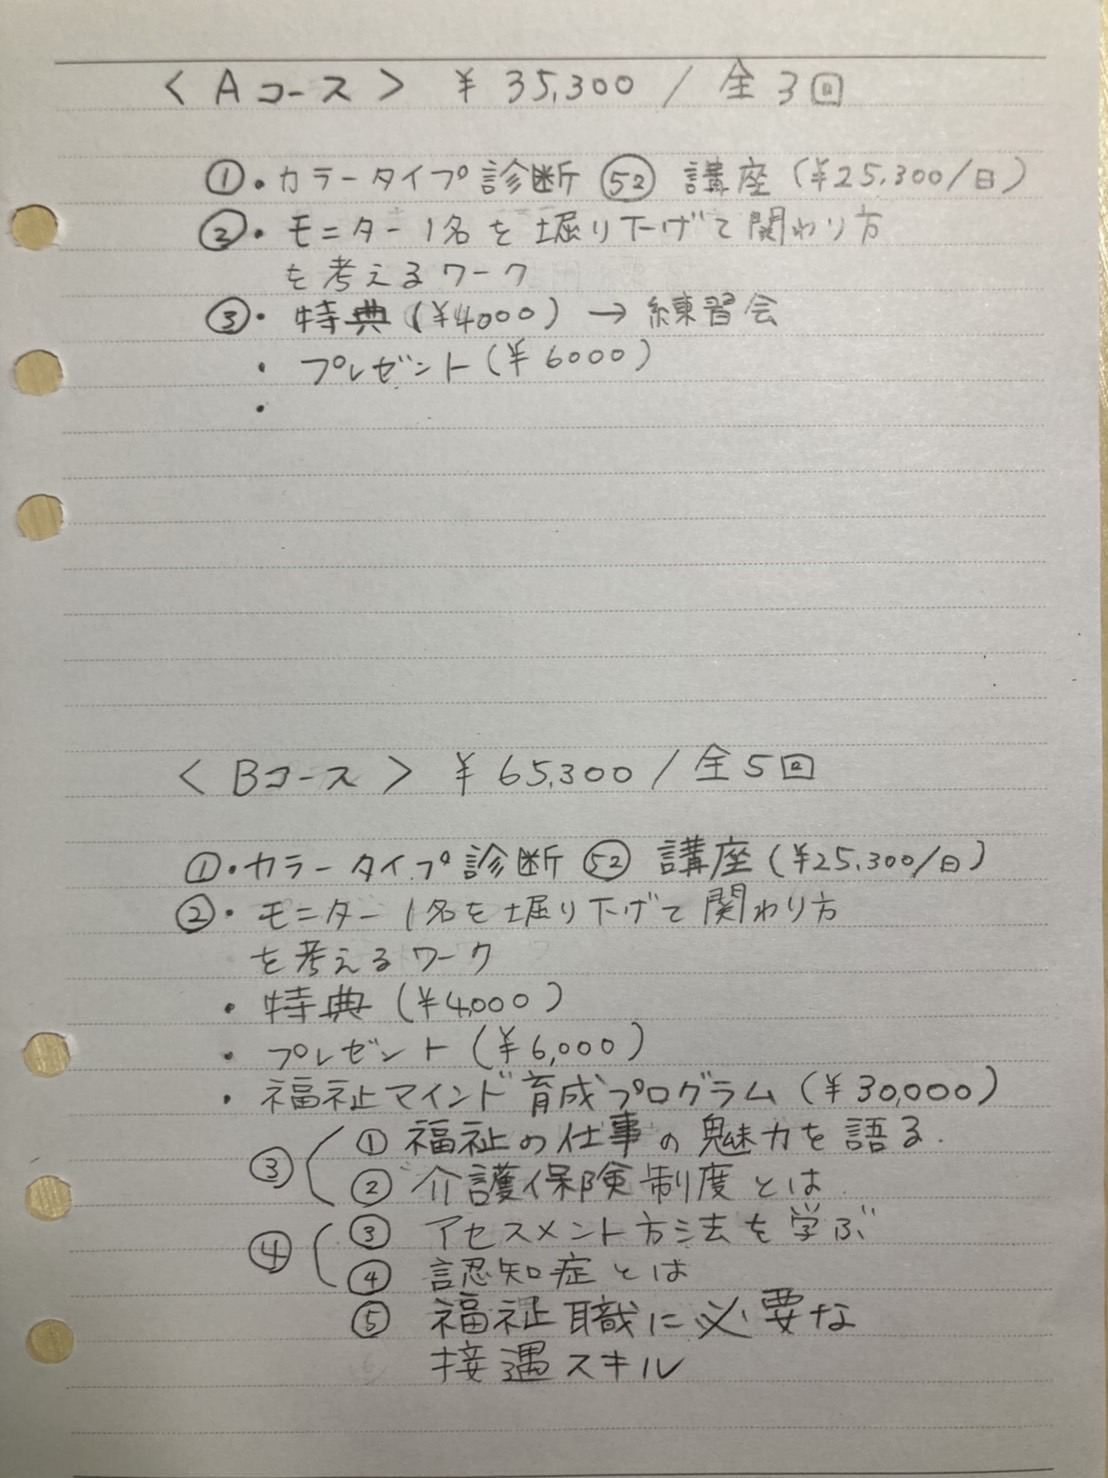 〈 Aコース 〉 ¥35,300 / 全3回
①・カラータイプ診断 ㊾ 講座(¥25,300/日)
②・モニター1名を堀り下げて関わり方
を考えるワーク
③・特典(¥4000) → 練習会
・プレゼント(¥6000)
・
〈 Bコース 〉 ¥65,300 / 全5回
①・カラータイプ診断 52 講座(¥25,300/日)
②・モニター1名を堀り下げて関わり方
を考えるワーク
・特典(¥4,000)
・プレゼント(¥6,000)
・福祉マインド育成プログラム(¥30,000)
③ ( ① 福祉の仕事の魅力を語る.
② 介護保険制度とは
④ ( ③ アセスメント方法を学ぶ
④ 認知症とは
⑤ 福祉職に必要な
接遇スキル